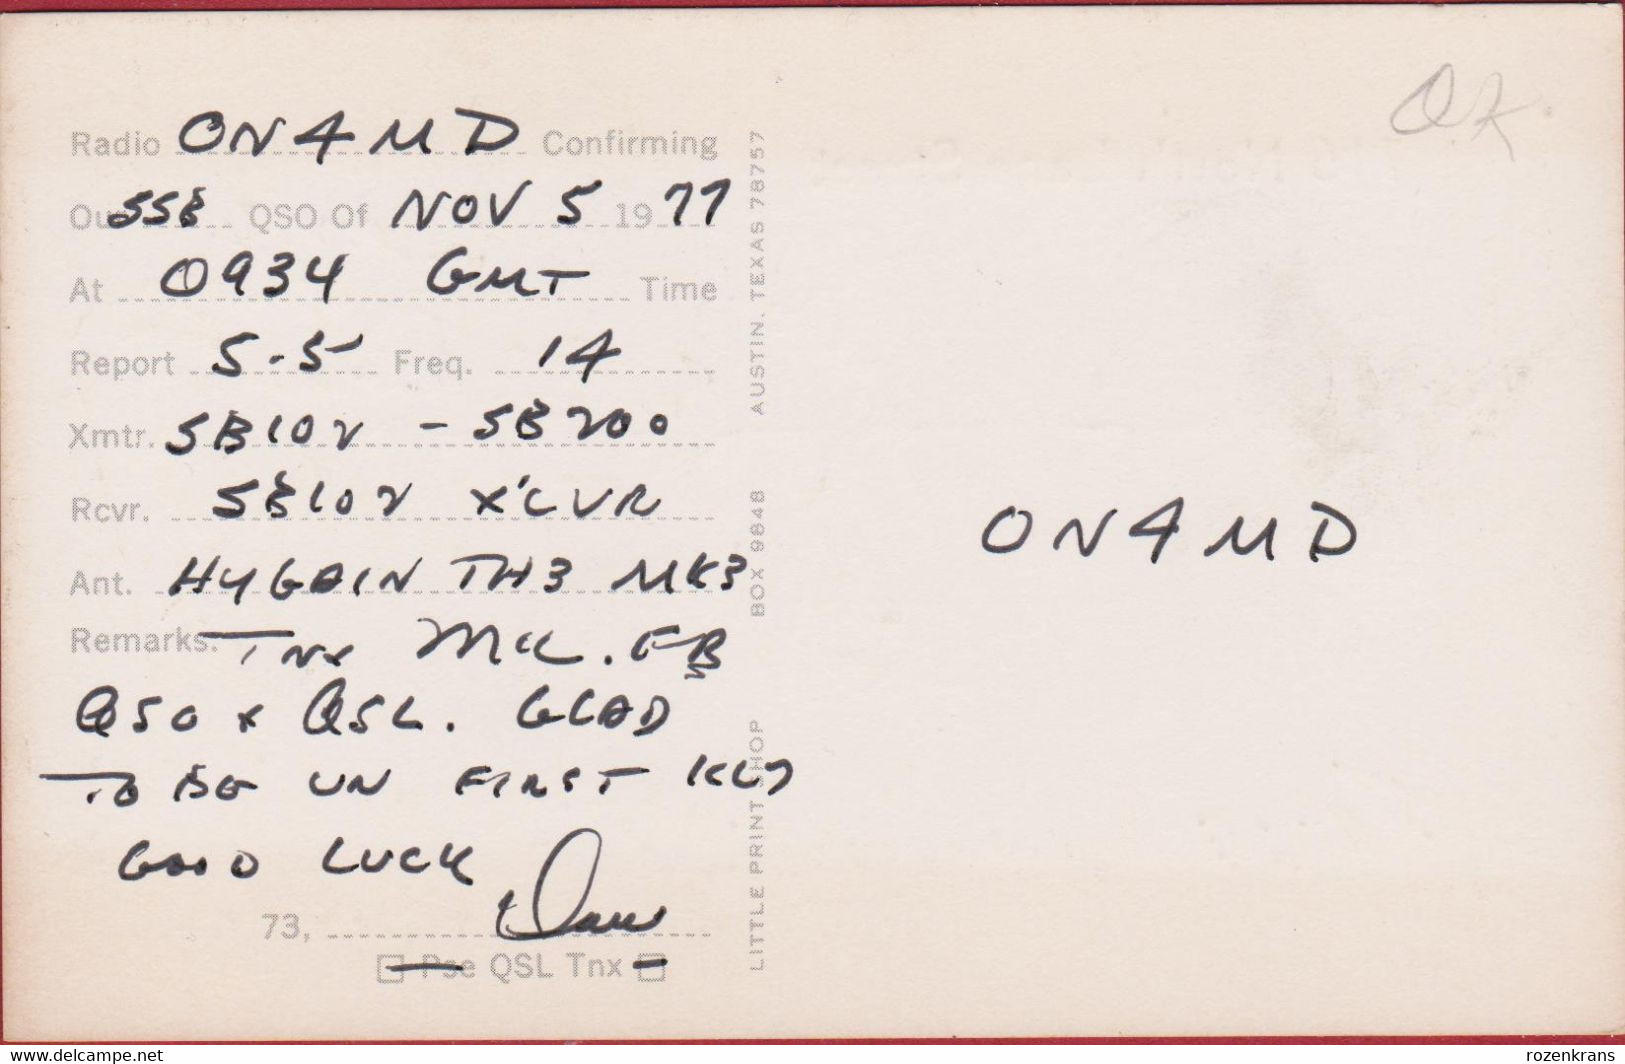 Radio ON4MD Confirming
Our SSB QSO Of NOV 5 1977
At 0934 GMT Time
Report 5-5 Freq. 14
Xmtr. SB102 - SB200
Rcvr. SB102 X'CVR
Ant. HYGAIN TH3 MK3
Remarks. TNX FB
QSO & QSL. GLAD
TO BE UR FIRST KL7
GOOD LUCK
73, Dave
Pse QSL Tnx
LITTLE PRINT SHOP BOX 9848 AUSTIN, TEXAS 78757
OK
ON4MD
www.delcampe.net
rozenkrans